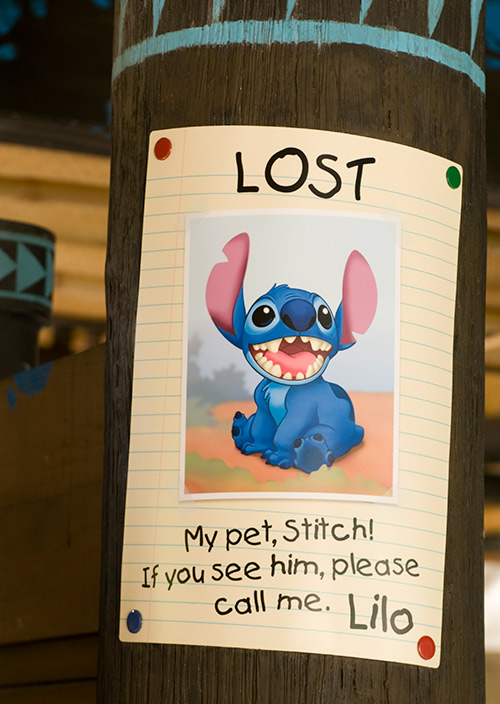 LOST
My pet, Stitch!
If you see him, please
call me. Lilo